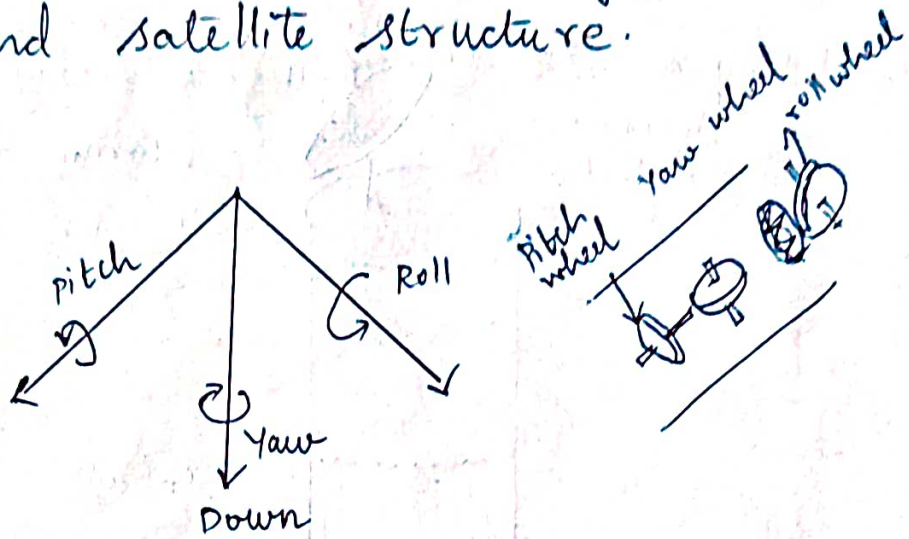 nd satellite structure.
pitch
Roll
Yaw
Down
Pitch
wheel
Yaw wheel
roll wheel